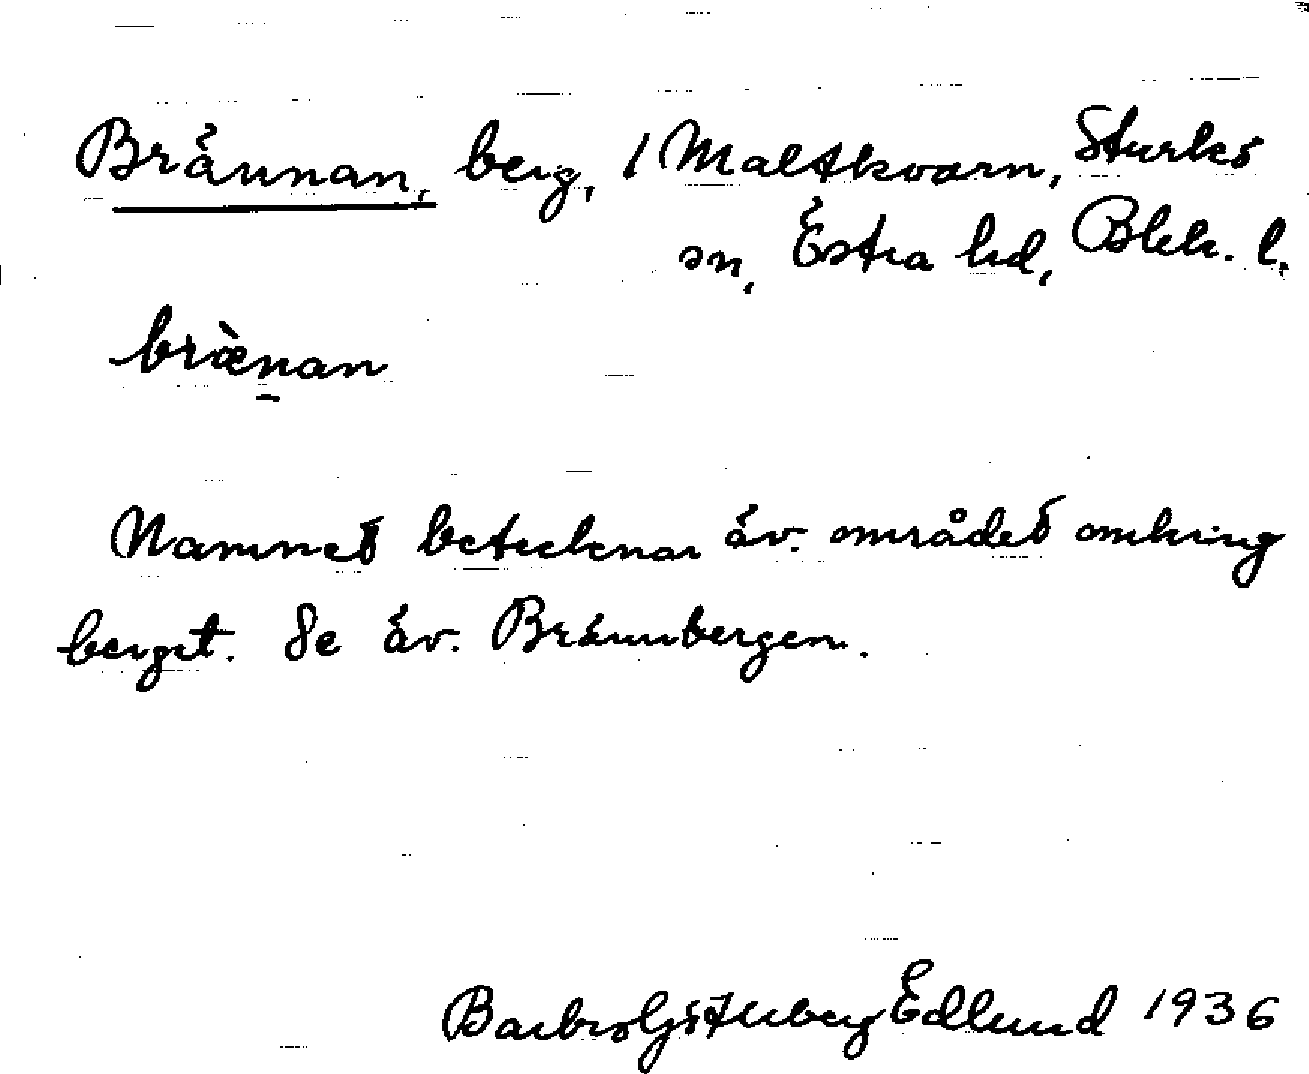 Brännan, berg, 1 Maltkvarn, Sturkö
sn, Östra hd, Blek. l.
bræ̀nan
Namnet betecknar äv. området omkring
berget. Se äv. Brännbergen.
Barbro Edlund 1936